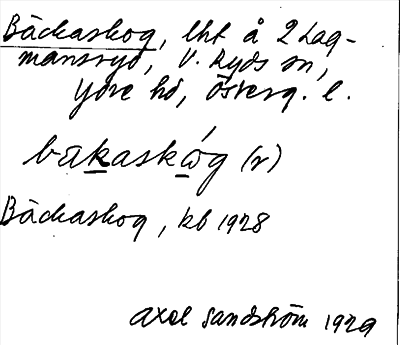 Bäckaskog, lht å 2 Lag-
mansryd, V. Ryds sn,
Ydre hd, Österg. l.
bakaskóg (r)
Bäckaskog, kb 1928
Axel Sandström 1929